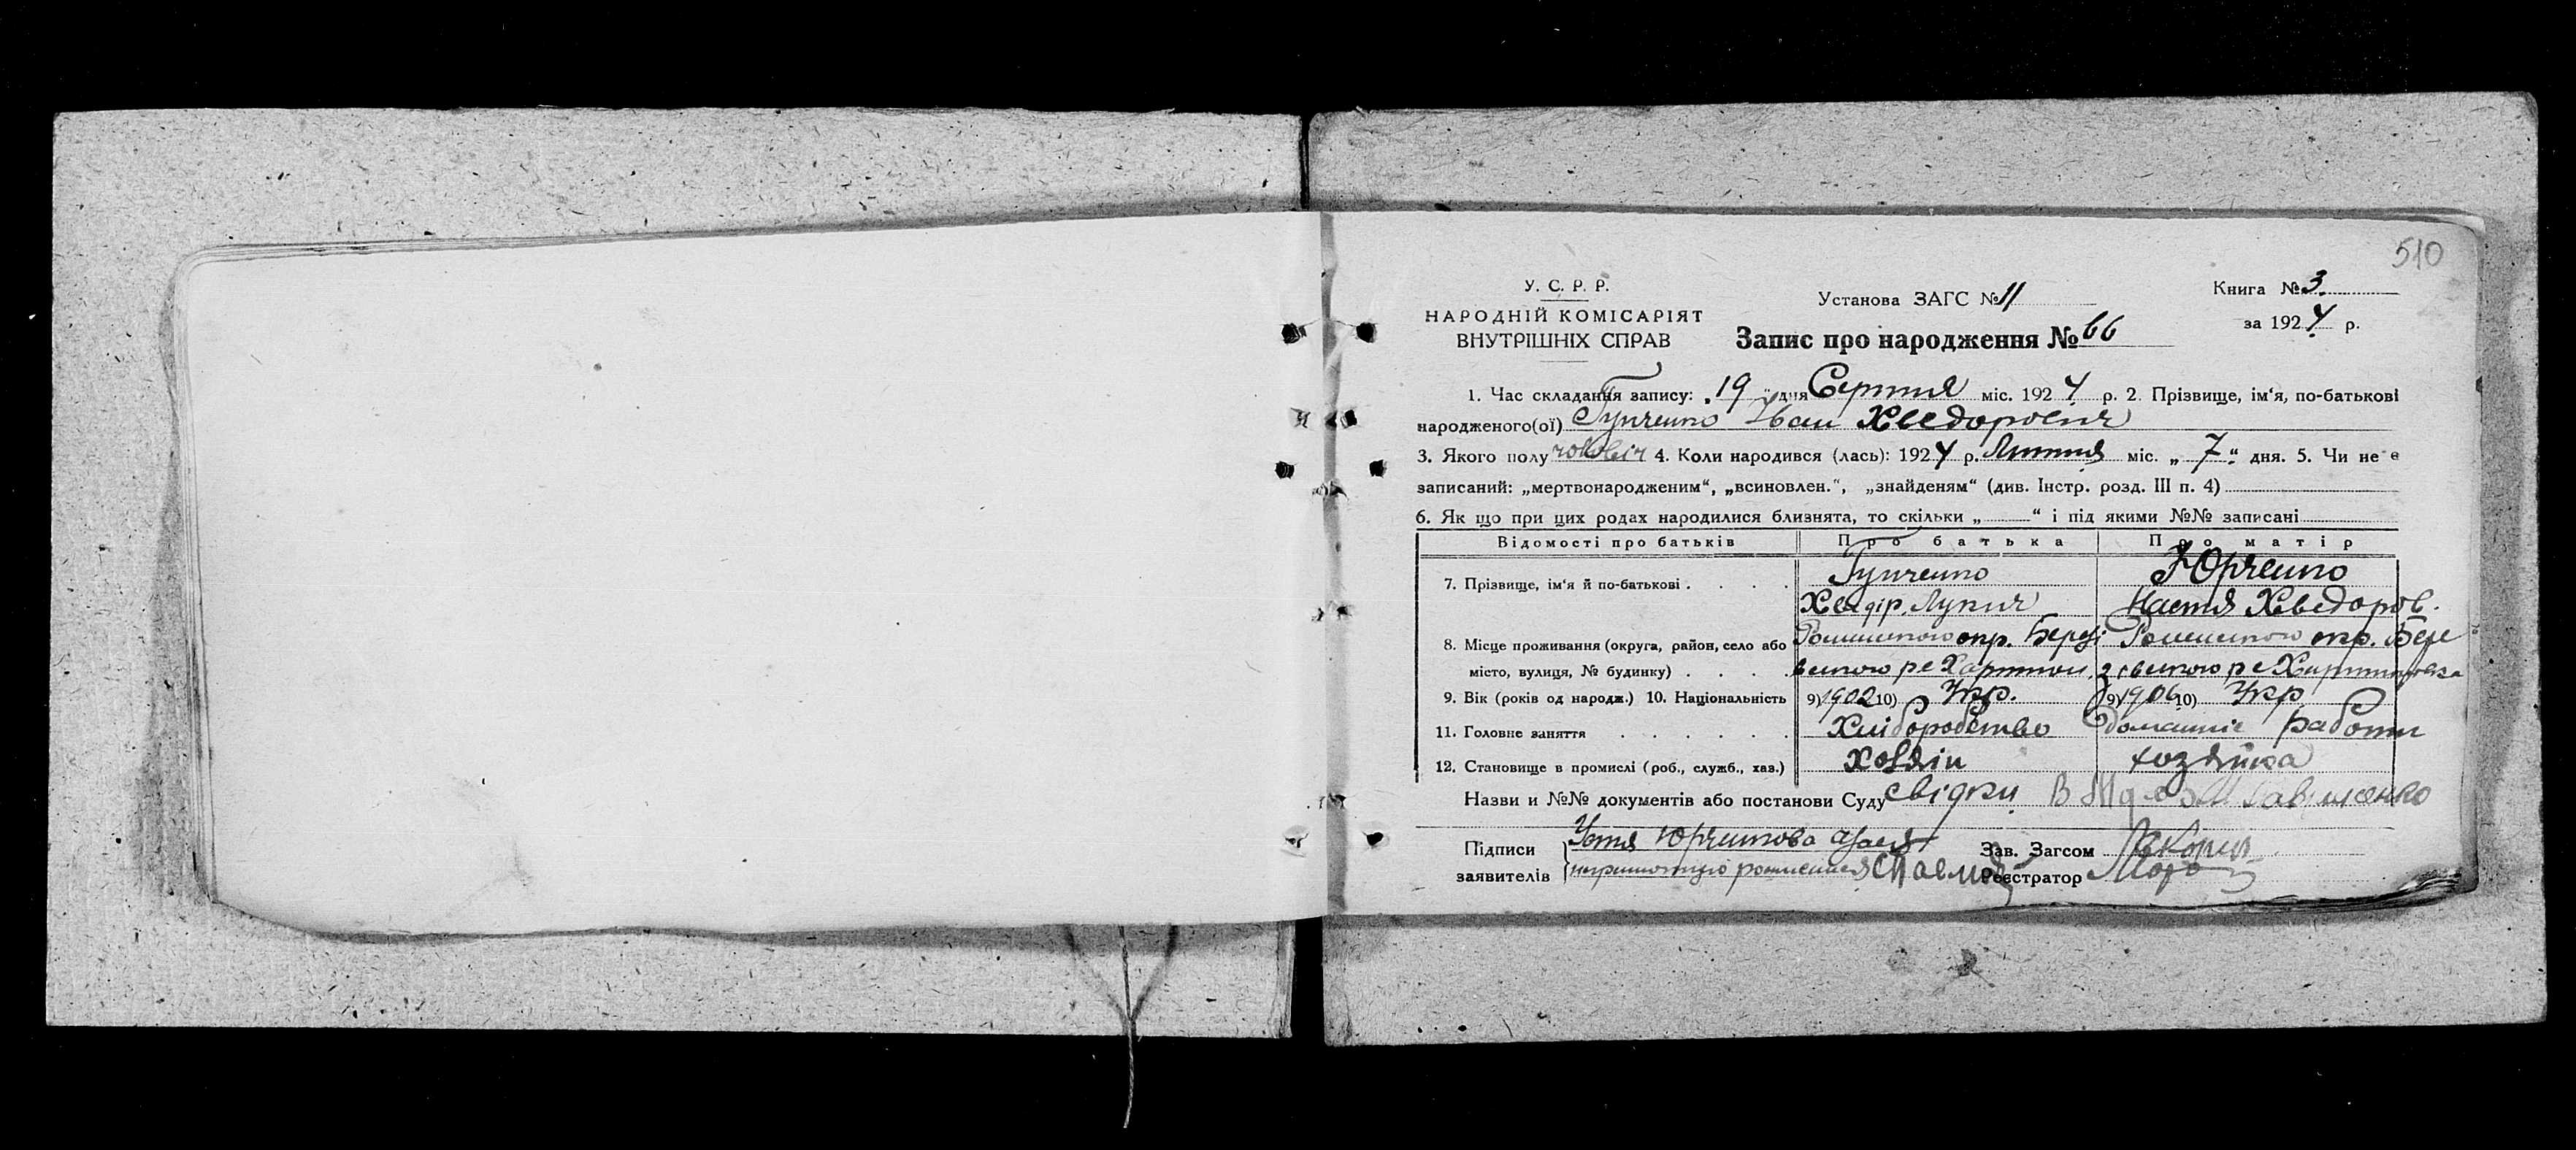 510
У. С. Р. Р.
НАРОДНІЙ КОМІСАРІЯТ
ВНУТРІШНІХ СПРАВ
Установа ЗАГС № 11
Запис про народження № 66
Книга № 3.
за 1924 р.
1. Час складання запису: „19“ дня Серпня міс. 1924 р. 2. Прізвище, ім‘я, по-батькові
народженого(ої) Гунченко Иван Хведорович
3. Якого полу чоловіч 4. Коли народився (лась): 1924 р. Липня міс. „7“ дня. 5. Чи не є
записаний: „мертвонародженим“, „всиновлен.“, „знайденям“ (див. Інстр. розд. III п. 4)
6. Як що при цих родах народилися близнята, то скільки „ “ і під якими №№ записані
Відомості про батьків Про батька Про матір
7. Прізвище, ім‘я й по-батькові Гунченко Юрченко
Хведір. Лукич Настя Хведоров.
8. Місце проживання (округа, район, село або Роменского окр. Березі Роменского окр. Бере
місто, вулиця, № будинку) вского ре зівского ре
9. Вік (років од народж.) 10. Національність 9) 1902 10) Укр. 9) 1906 10) Укр.
11. Головне заняття Хліборобство домашніе работи
12. Становище в промислі (роб., служб., хаз.) Хозяін хозяйка
Назви и №№ документів або постанови Суду свідки
Підписи Юрченкова
заявителів
Зав. Загсом
Реєстратор Мороз